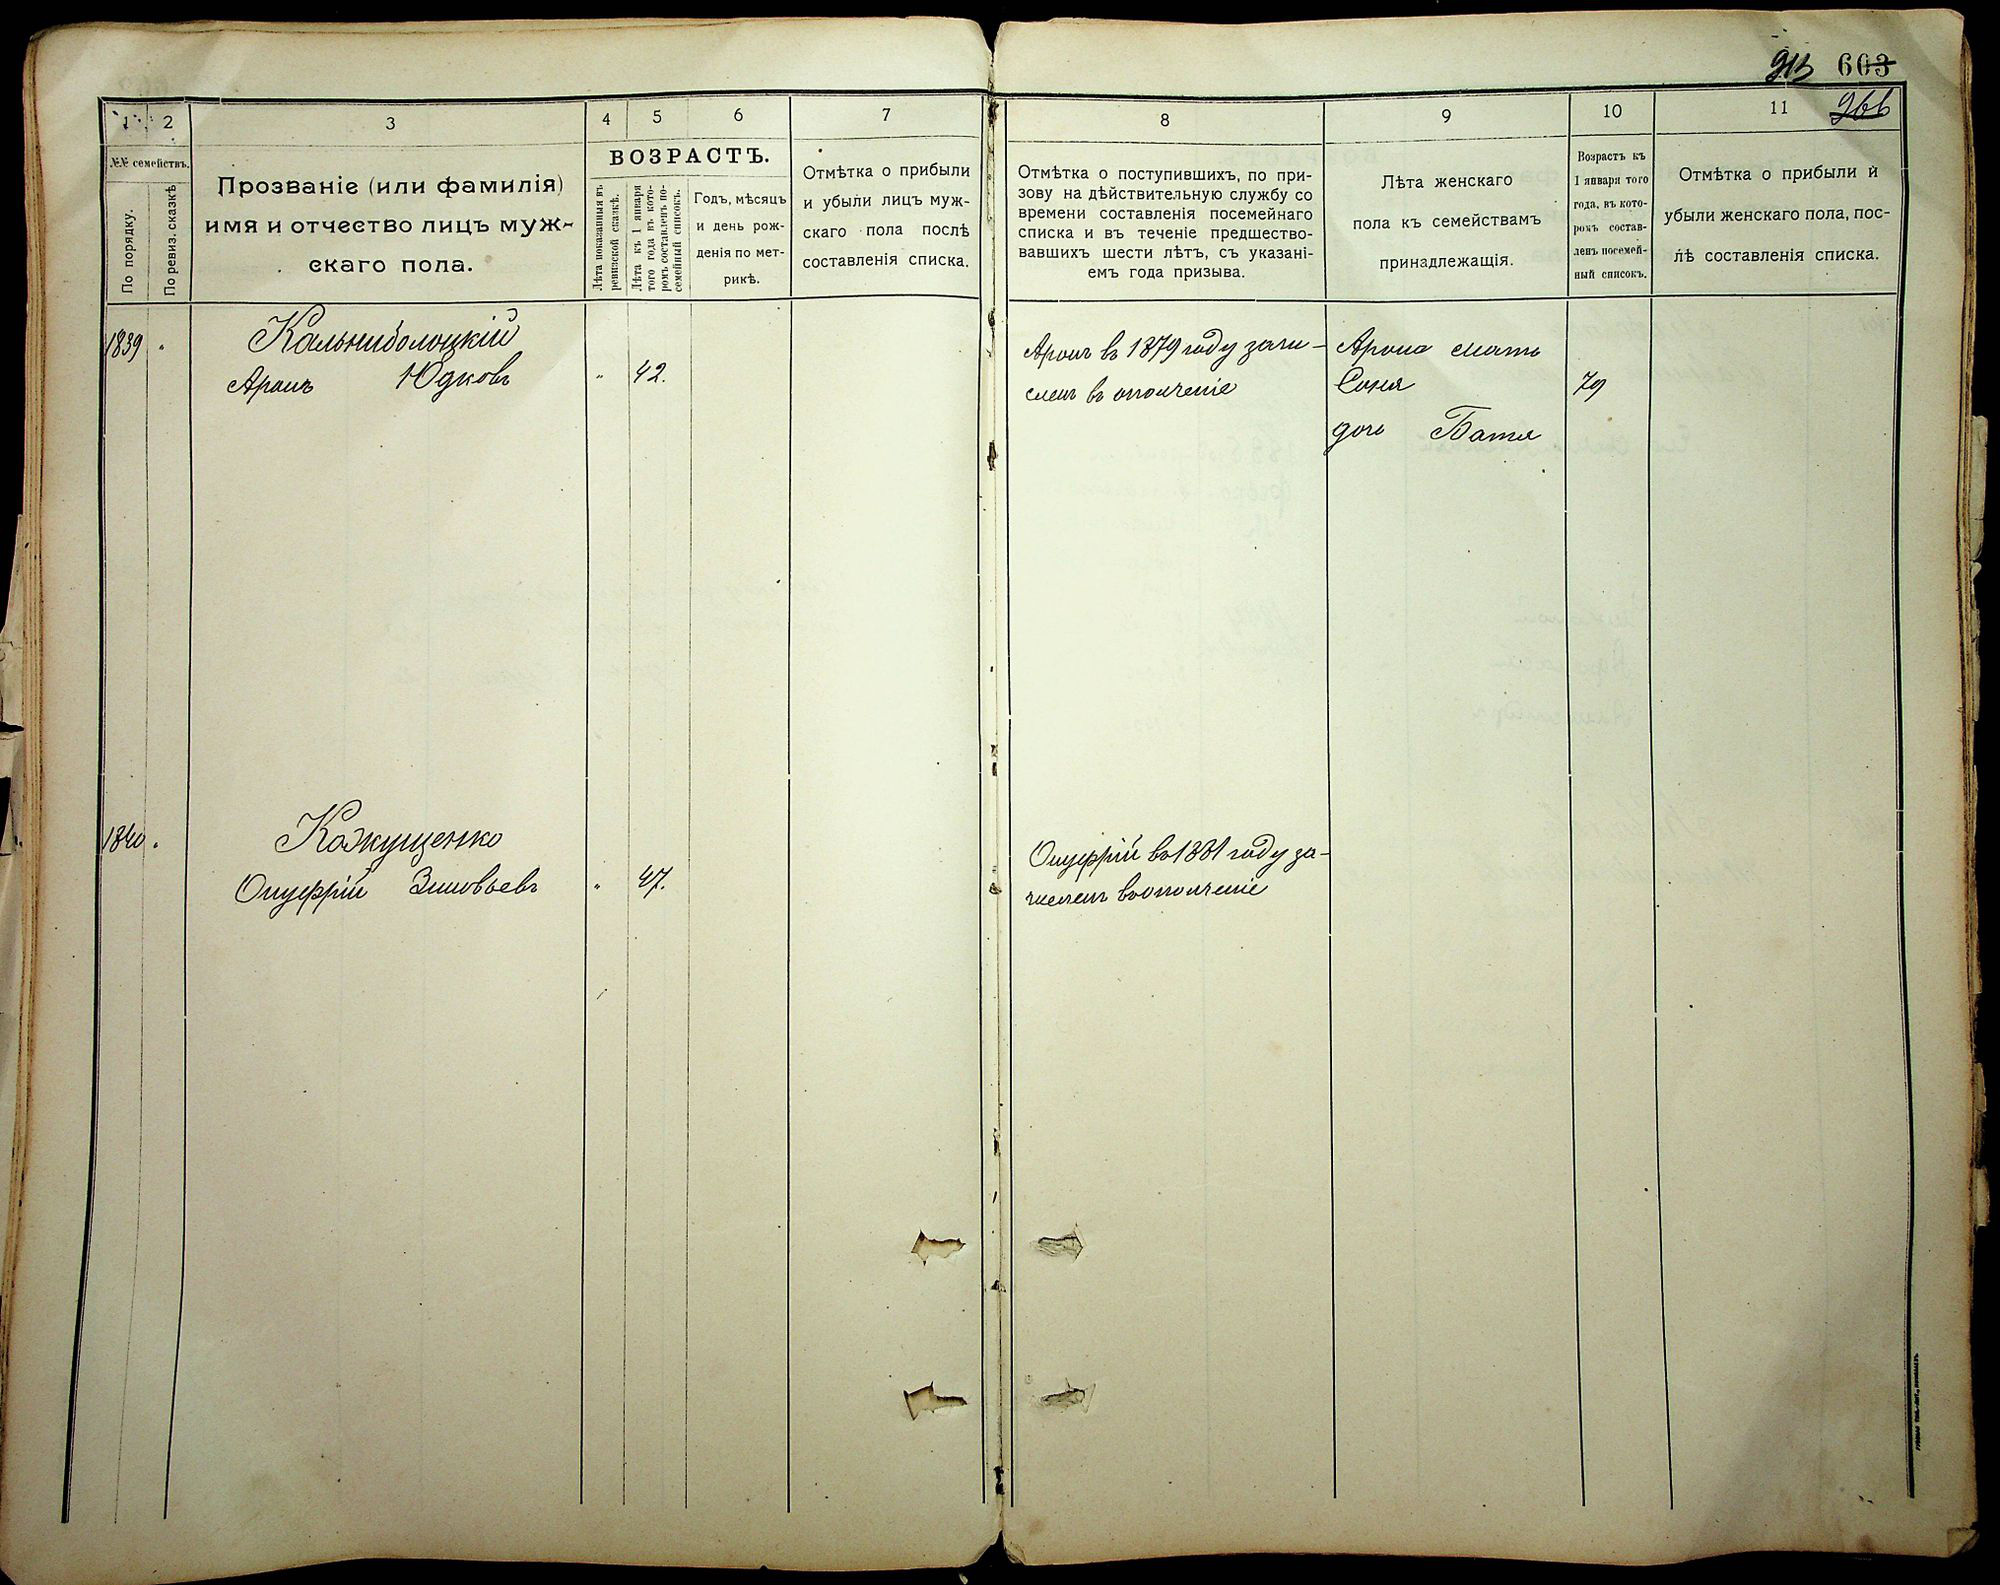 603
966
1 2 3 4 5 6 7
№№ семействъ.
По порядку.
По ревиз. сказкѣ
Прозваніе (или фамилія)
имя и отчество лицъ муж-
скаго пола.
ВОЗРАСТЪ.
Лѣта показанныя въ
ревизской сказкѣ.
Лѣта къ 1 января
того года въ кото-
ромъ составленъ по-
семейный списокъ.
Годъ, мѣсяцъ
и день рож-
денія по мет-
рикѣ.
Отмѣтка о прибыли
и убыли лицъ муж-
скаго пола послѣ
составленія списка.
1839 Кальниболоцкій
Аронъ Юдковъ " 42.
1840. Кажущенко
Онуфрій Зиновьевъ " 47.
8 9 10 11
Отмѣтка о поступившихъ, по при-
зову на дѣйствительную службу со
времени составленія посемейнаго
списка и въ теченіе предшество-
вавшихъ шести лѣтъ, съ указані-
емъ года призыва.
Лѣта женскаго
пола къ семействамъ
принадлежащія.
Возрастъ къ
1 января того
года, въ кото-
ромъ состав-
ленъ посемей-
ный списокъ.
Отмѣтка о прибыли и
убыли женскаго пола, пос-
лѣ составленія списка.
Аронъ въ 1879 году зачи-
сленъ въ ополченіе
Арона мать
Соня 79
дочь Батя
Онуфрій въ 1881 году за-
численъ въ ополченіе